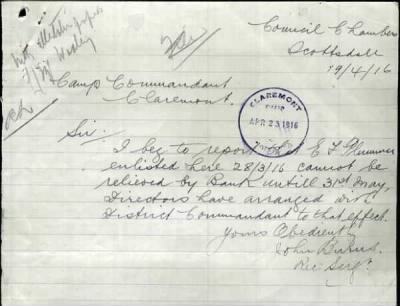 Council Chambers
Scottsdale
19/4/16
Camp Commandant
Claremont.
CLAREMONT
APR 23 1916
Sir.
I beg to report that E L Plummer
enlisted here 28/3/16 cannot be
relieved by Bank untill 31st May,
Directors have arranged with
District Commandant to that effect.
Yours Obedient
John
Rec Sergt.